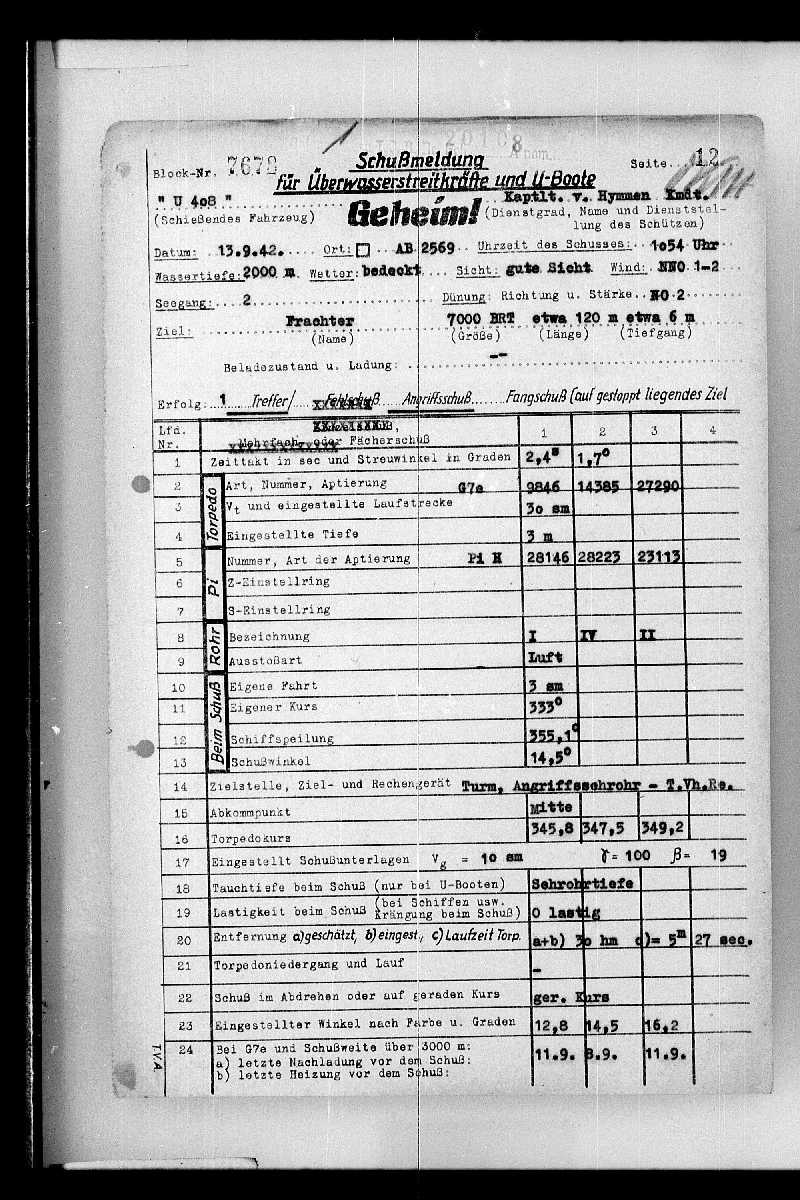 Block-Nr. 7672
Schußmeldung
Seite 12
für Überwasserstreitkräfte und U-Boote
" U 408 "
Kaptlt. v. Hymmen Kmdt.
(Schießendes Fahrzeug)
Geheim!
(Dienstgrad, Name und Dienststel-
lung des Schützen)
Datum: 13.9.42. Ort: □ AB 2569 Uhrzeit des Schusses: 1o54 Uhr
Wassertiefe: 2000 m Wetter: bedeckt Sicht: gute Sicht Wind: NNO 1-2
Seegang: 2 Dünung: Richtung u. Stärke NO 2
Ziel: Frachter 7000 BRT etwa 120 m etwa 6 m
(Name) (Größe) (Länge) (Tiefgang)
Beladezustand u. Ladung: --
Erfolg: 1 Treffer/ Fehlschuß Angriffsschuß Fangschuß (auf gestoppt liegendes Ziel
Lfd. Nr. Mehrfach- oder Fächerschuß 1 2 3 4
1 Zeittakt in sec und Streuwinkel in Graden 2,4s 1,7°
Torpedo
2 Art, Nummer, Aptierung G7e 9846 14385 27290
3 Vt und eingestellte Laufstrecke 3o sm
4 Eingestellte Tiefe 3 m
Pi
5 Nummer, Art der Aptierung Pi H 28146 28223 23113
6 Z-Einstellring
7 S-Einstellring
Rohr
8 Bezeichnung I IV II
9 Ausstoßart Luft
Beim Schuß
10 Eigene Fahrt 3 sm
11 Eigener Kurs 333°
12 Schiffspeilung 355,1°
13 Schußwinkel 14,5°
14 Zielstelle, Ziel- und Rechengerät Turm, Angriffssehrohr - T.Vh.Re.
15 Abkommpunkt Mitte
16 Torpedokurs 345,8 347,5 349,2
17 Eingestellt Schußunterlagen Vg = 1o sm γ= 100 β= 19
18 Tauchtiefe beim Schuß (nur bei U-Booten) Sehrohrtiefe
19 Lastigkeit beim Schuß (bei Schiffen usw. Krängung beim Schuß) O lastig
20 Entfernung a) geschätzt, b) eingest., c) Laufzeit Torp. a+b) 3o hm c)= 5m 27 sec.
21 Torpedoniedergang und Lauf -
22 Schuß im Abdrehen oder auf geraden Kurs ger. Kurs
23 Eingestellter Winkel nach Farbe u. Graden 12,8 14,5 16,2
24 Bei G7e und Schußweite über 3000 m:
a) letzte Nachladung vor dem Schuß: 11.9. 8.9. 11.9.
b) letzte Heizung vor dem Schuß:
T.V.A